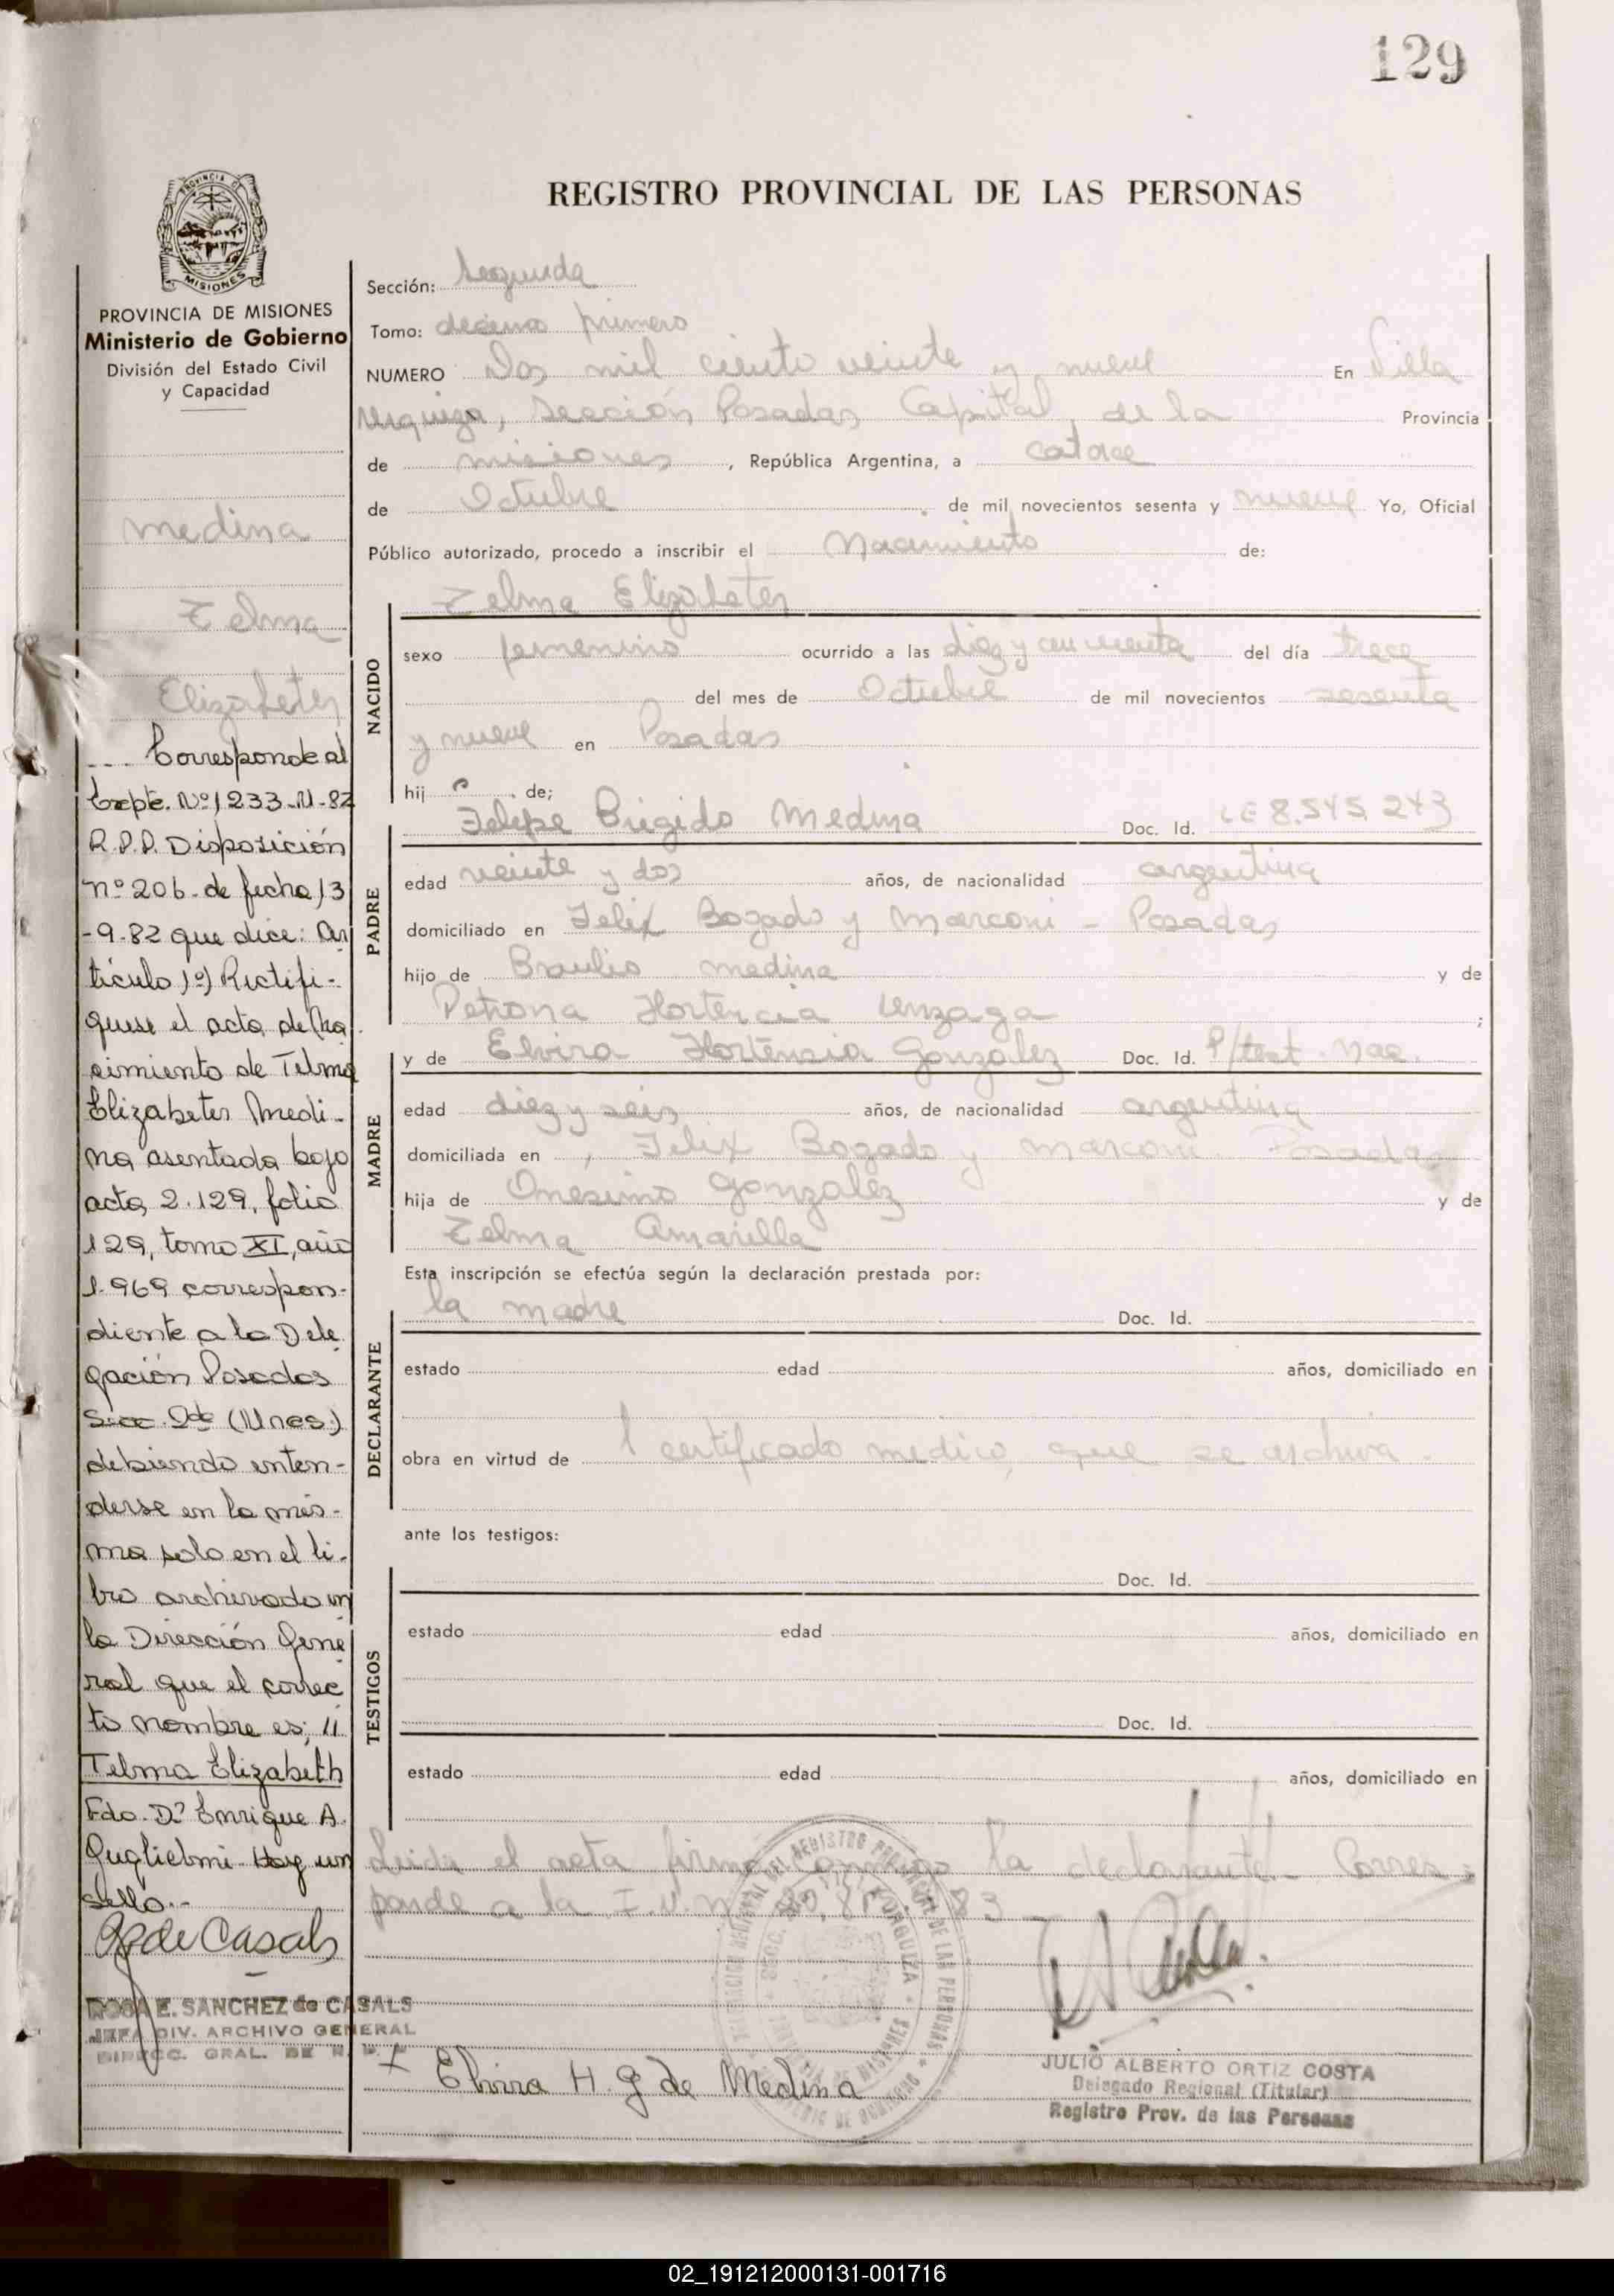 129
REGISTRO PROVINCIAL DE LAS PERSONAS
PROVINCIA DE
MISIONES
PROVINCIA DE MISIONES
Ministerio de Gobierno
División del Estado Civil
y Capacidad
Medina
Telma
Elizabeter
Corresponde al
Expte. Nº 1233-M-82
R.P.P. Disposición
nº 206 de fecha 13
-9-82 que dice: Ar
tículo 1º) Rectifí-
quese el acta de Na
cimiento de Telma
Elizabeter Medi-
na asentada bajo
acta 2.129, folio
129, tomo XI, año
1.969 correspon-
diente a la Dele
gación Posadas
Secc. 2da (Mnes.)
debiendo enten-
derse en la mis-
ma solo en el li-
bro archivado en
la Dirección Gene
ral que el correc
to nombre es; "
Telma Elizabeth
Fdo. Dr Enrique A.
Guglielmi Hay un
sello.-
de Casals
ROSA E. SANCHEZ de CASALS
JEFA DIV. ARCHIVO GENERAL
DIRECC. GRAL. DE R. P. P.
Sección: Segunda
Tomo: decimo primero
NUMERO Dos mil ciento veinte y nueve En Villa
Urquiza, Sección Posadas Capital de la Provincia
de misiones, República Argentina, a catorce
de Octubre de mil novecientos sesenta y nueve Yo, Oficial
Público autorizado, procedo a inscribir el Nacimiento de:
NACIDO
Telma Elizabeter
sexo femenino ocurrido a las diez y cincuenta del día trece
del mes de Octubre de mil novecientos sesenta
y nueve en Posadas
hij a de;
PADRE
Felipe Brigido Medina Doc. Id. LE 8.545.243
edad veinte y dos años, de nacionalidad argentina
domiciliado en Felix Bogado y Marconi - Posadas
hijo de Braulio medina y de
Petrona Hortencia Unzaga ;
MADRE
y de Elvira Hortensia Gonzalez Doc. Id. P/test. Nac.
edad diez y seis años, de nacionalidad argentina
domiciliada en , Felix Bogado y marconi. Posadas
hija de Onesimo Gonzalez y de
Telma Amarilla
Esta inscripción se efectúa según la declaración prestada por:
DECLARANTE
la madre Doc. Id.
estado edad años, domiciliado en
obra en virtud de l certificado medico, que se archiva.
ante los testigos:
TESTIGOS
Doc. Id.
estado edad años, domiciliado en
Doc. Id.
estado edad años, domiciliado en
Leida el acta firma conmigo la declarante- Corres
ponde a la
Elvira H. G de Medina
JULIO ALBERTO ORTIZ COSTA
Delegado Regional (Titular)
Registro Prov. de las Personas
02_191212000131-001716